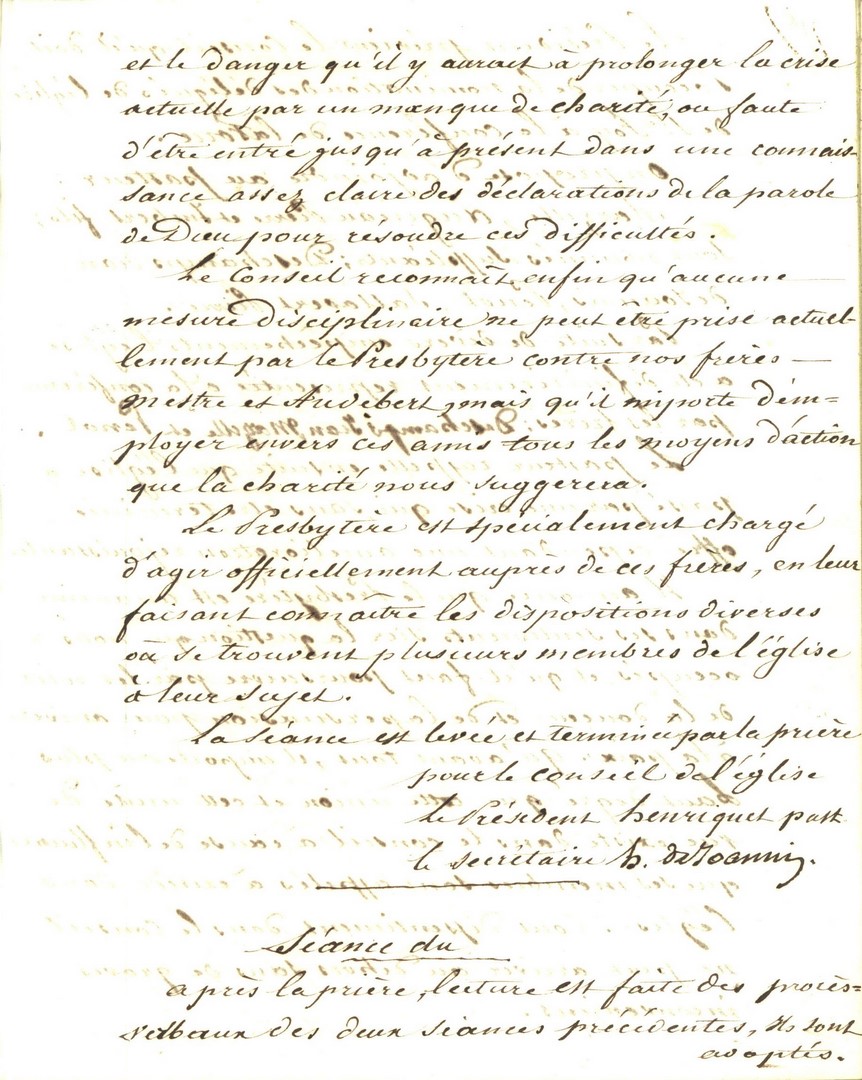 et le danger qu'il y aurait à prolonger la crise
actuelle par un manque de charité, ou faute
d'être entré jusqu'à présent dans une connais-
sance assez claire des déclarations de la parole
de Dieu pour résoudre ces difficultés.
Le Conseil reconnaît enfin qu'aucune
mesure disciplinaire ne peut être prise actuel-
lement par le Presbytère contre nos frères —
mestre et Auvebert, mais qu'il importe d'em=
ployer envers ces amis tous les moyens d'action
que la charité nous suggerera.
Le Presbytère est spécialement chargé
d'agir officiellement auprès de ces frères, en leur
faisant connaître les dispositions diverses
où se trouvent plusieurs membres de l'église
à leur sujet.
La séance est levée et terminée par la prière
pour le conseil de l'église
le Président henriquet past
le secrétaire h. de Joannis.
Séance du
après la prière, lecture est faite des procès=
verbaux des deux séances précédentes, ils sont
adoptés.